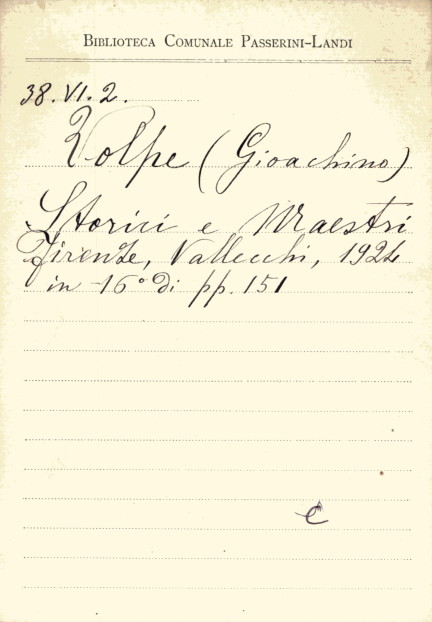 BIBLIOTECA COMUNALE PASSERINI-LANDI
38.VI.2.
Volpe (Gioachino)
Storici e Maestri
Firenze, Vallecchi, 1924
in -16° di pp. 151
C